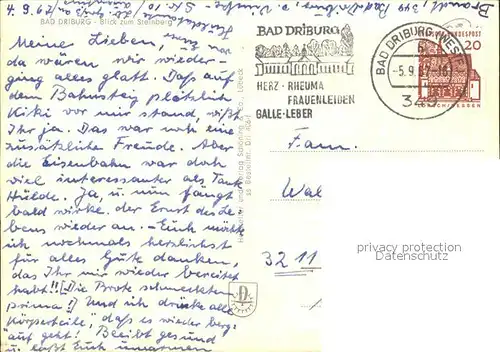 4.9.67
BAD DRIBURG - Blick zum Steinberg
Meine Lieben,
da waren wir wieder-
ging alles glatt. Daß auf
dem Bahnsteig plötzlich
Kiki vor mir stand, wißt
Ihr ja. Das war noch eine
zusätzliche Freude. Aber
die Eisenbahn war doch
viel interessanter als Tante
Hulde. Ja, u nun fängt
bald wirkl. der Ernst des Le-
bens wieder an. - Euch möchte
ich nochmals herzlichst
für alles Gute danken,
das Ihr mir wieder bereitet
habt!! Die Brote schmeckten
prima! Und ich drücke alle
"Körperteile", daß es wieder berg-
auf geht! Bleibt gesund
u. laßt Euch umarmen
BAD DRIBURG
HERZ - RHEUMA
FRAUENLEIDEN
GALLE-LEBER
BAD DRIBURG (WESTF)
-5.9.67-16
349
BUNDESPOST
20
Fam.
Wal
3211
privacy protection
DSGVO